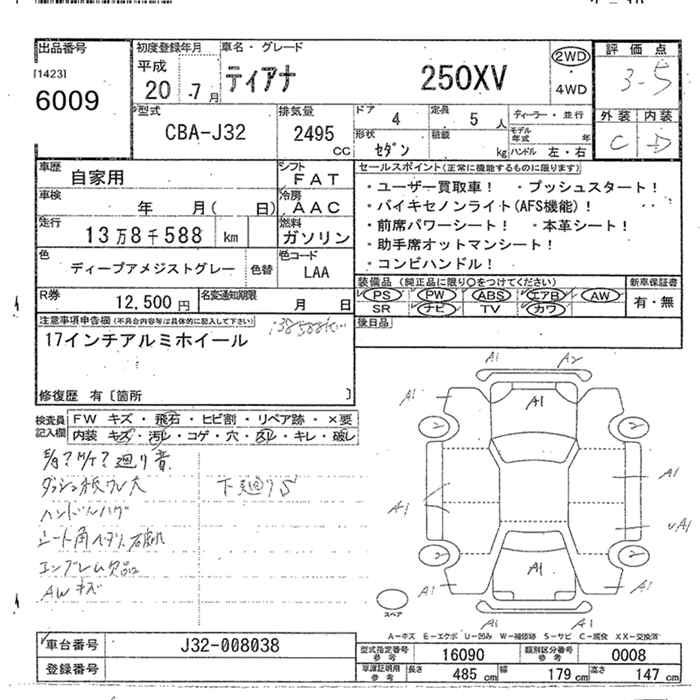 出品番号
[1423]
6009
初度登録年月
平成
20 .7月
車名・グレード
ティアナ 250XV
2WD
4WD
評価点
3-5
外装 内装
C D
型式
CBA-J32
排気量
2495
CC
ドア 4
定員 5 人
ディーラー・並行
形状
セダン
積載
kg
モデル年式 年
ハンドル 左・右
車歴
自家用
シフト
FAT
車検
年 月( 日)
冷房
AAC
走行
13万8千588 km
燃料
ガソリン
色
ディープアメジストグレー
色替
色コード
LAA
R券
12,500円
名変通知期限
月 日
セールスポイント(正常に機能するものに限ります)
・ユーザー買取車! ・プッシュスタート!
・バイキセノンライト(AFS機能)!
・前席パワーシート! ・本革シート!
・助手席オットマンシート!
・コンビハンドル!
装備品(純正品に限り○をつけてください)
PS PW ABS エアB AW
SR ナビ TV カワ
新車保証書
有・無
後日品
注意事項申告欄(不具合内容等は具体的に記入して下さい)
17インチアルミホイール
修復歴 有〔箇所 〕
検査員記入欄
FW キズ・飛石・ヒビ割・リペア跡・×要
内装 キズ・汚レ・コゲ・穴・スレ・キレ・破レ
廻り音
ハンドルハゲ
エンブレム欠品
AWキズ
下廻りS
A1 A2
A1 A1
2 2
A1 A1
A1
2 2
A1 A1 A1
A1 A1
スペア
A-キズ E-エクボ U-凹み W-補修跡 S-サビ C-腐食 XX-交換済
車台番号
J32-008038
登録番号
型式指定番号 参考 16090
類別区分番号 参考 0008
車庫証明用 参考
長さ 485 cm 幅 179 cm 高さ 147 cm